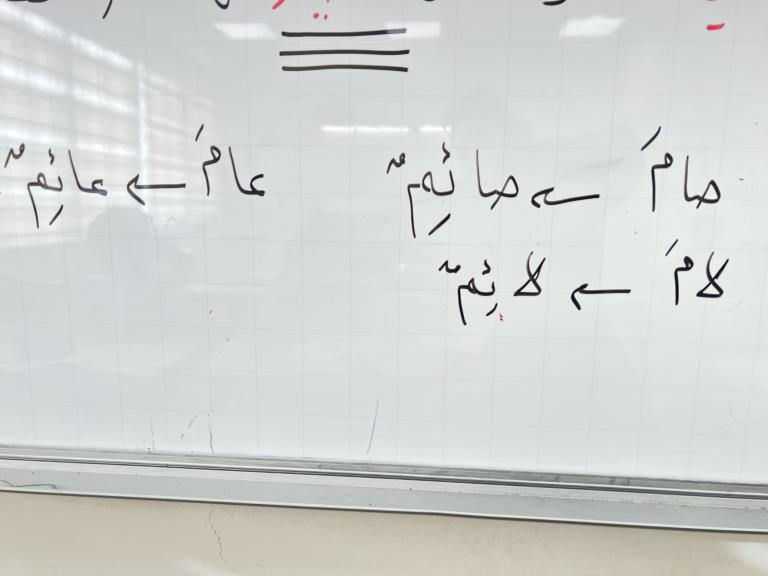 صامَ ← صائِمٌ عامَ ← عائِمٌ
لامَ ← لائِمٌ